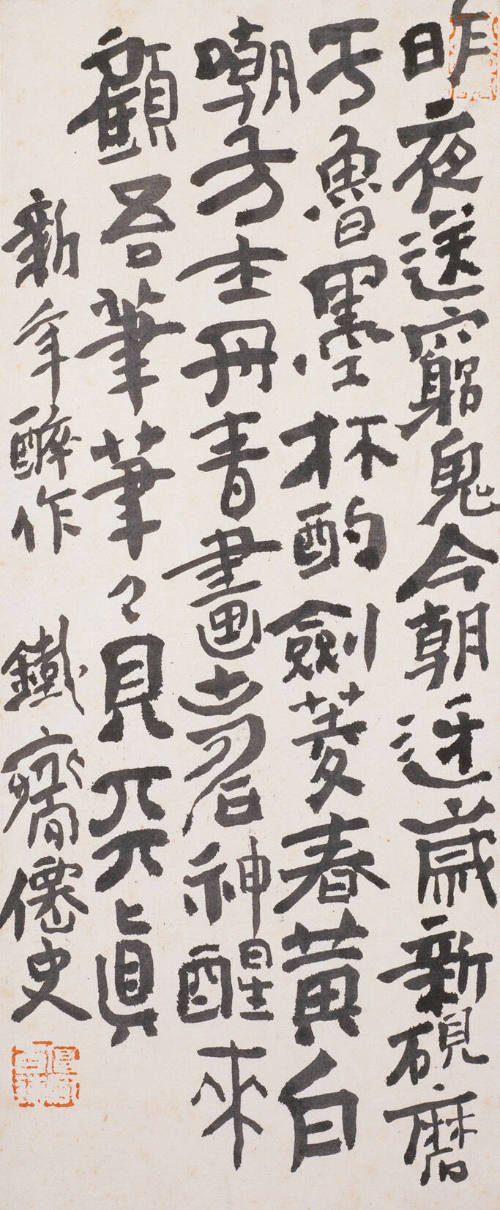 昨夜送窮鬼今朝迓歳新硯磨
丐魯墨杯酌劍菱春黄白
嘲方士丹青畫壽神醒來
顧吾筆筆々具天眞
新年醉作 鐵齋僊史